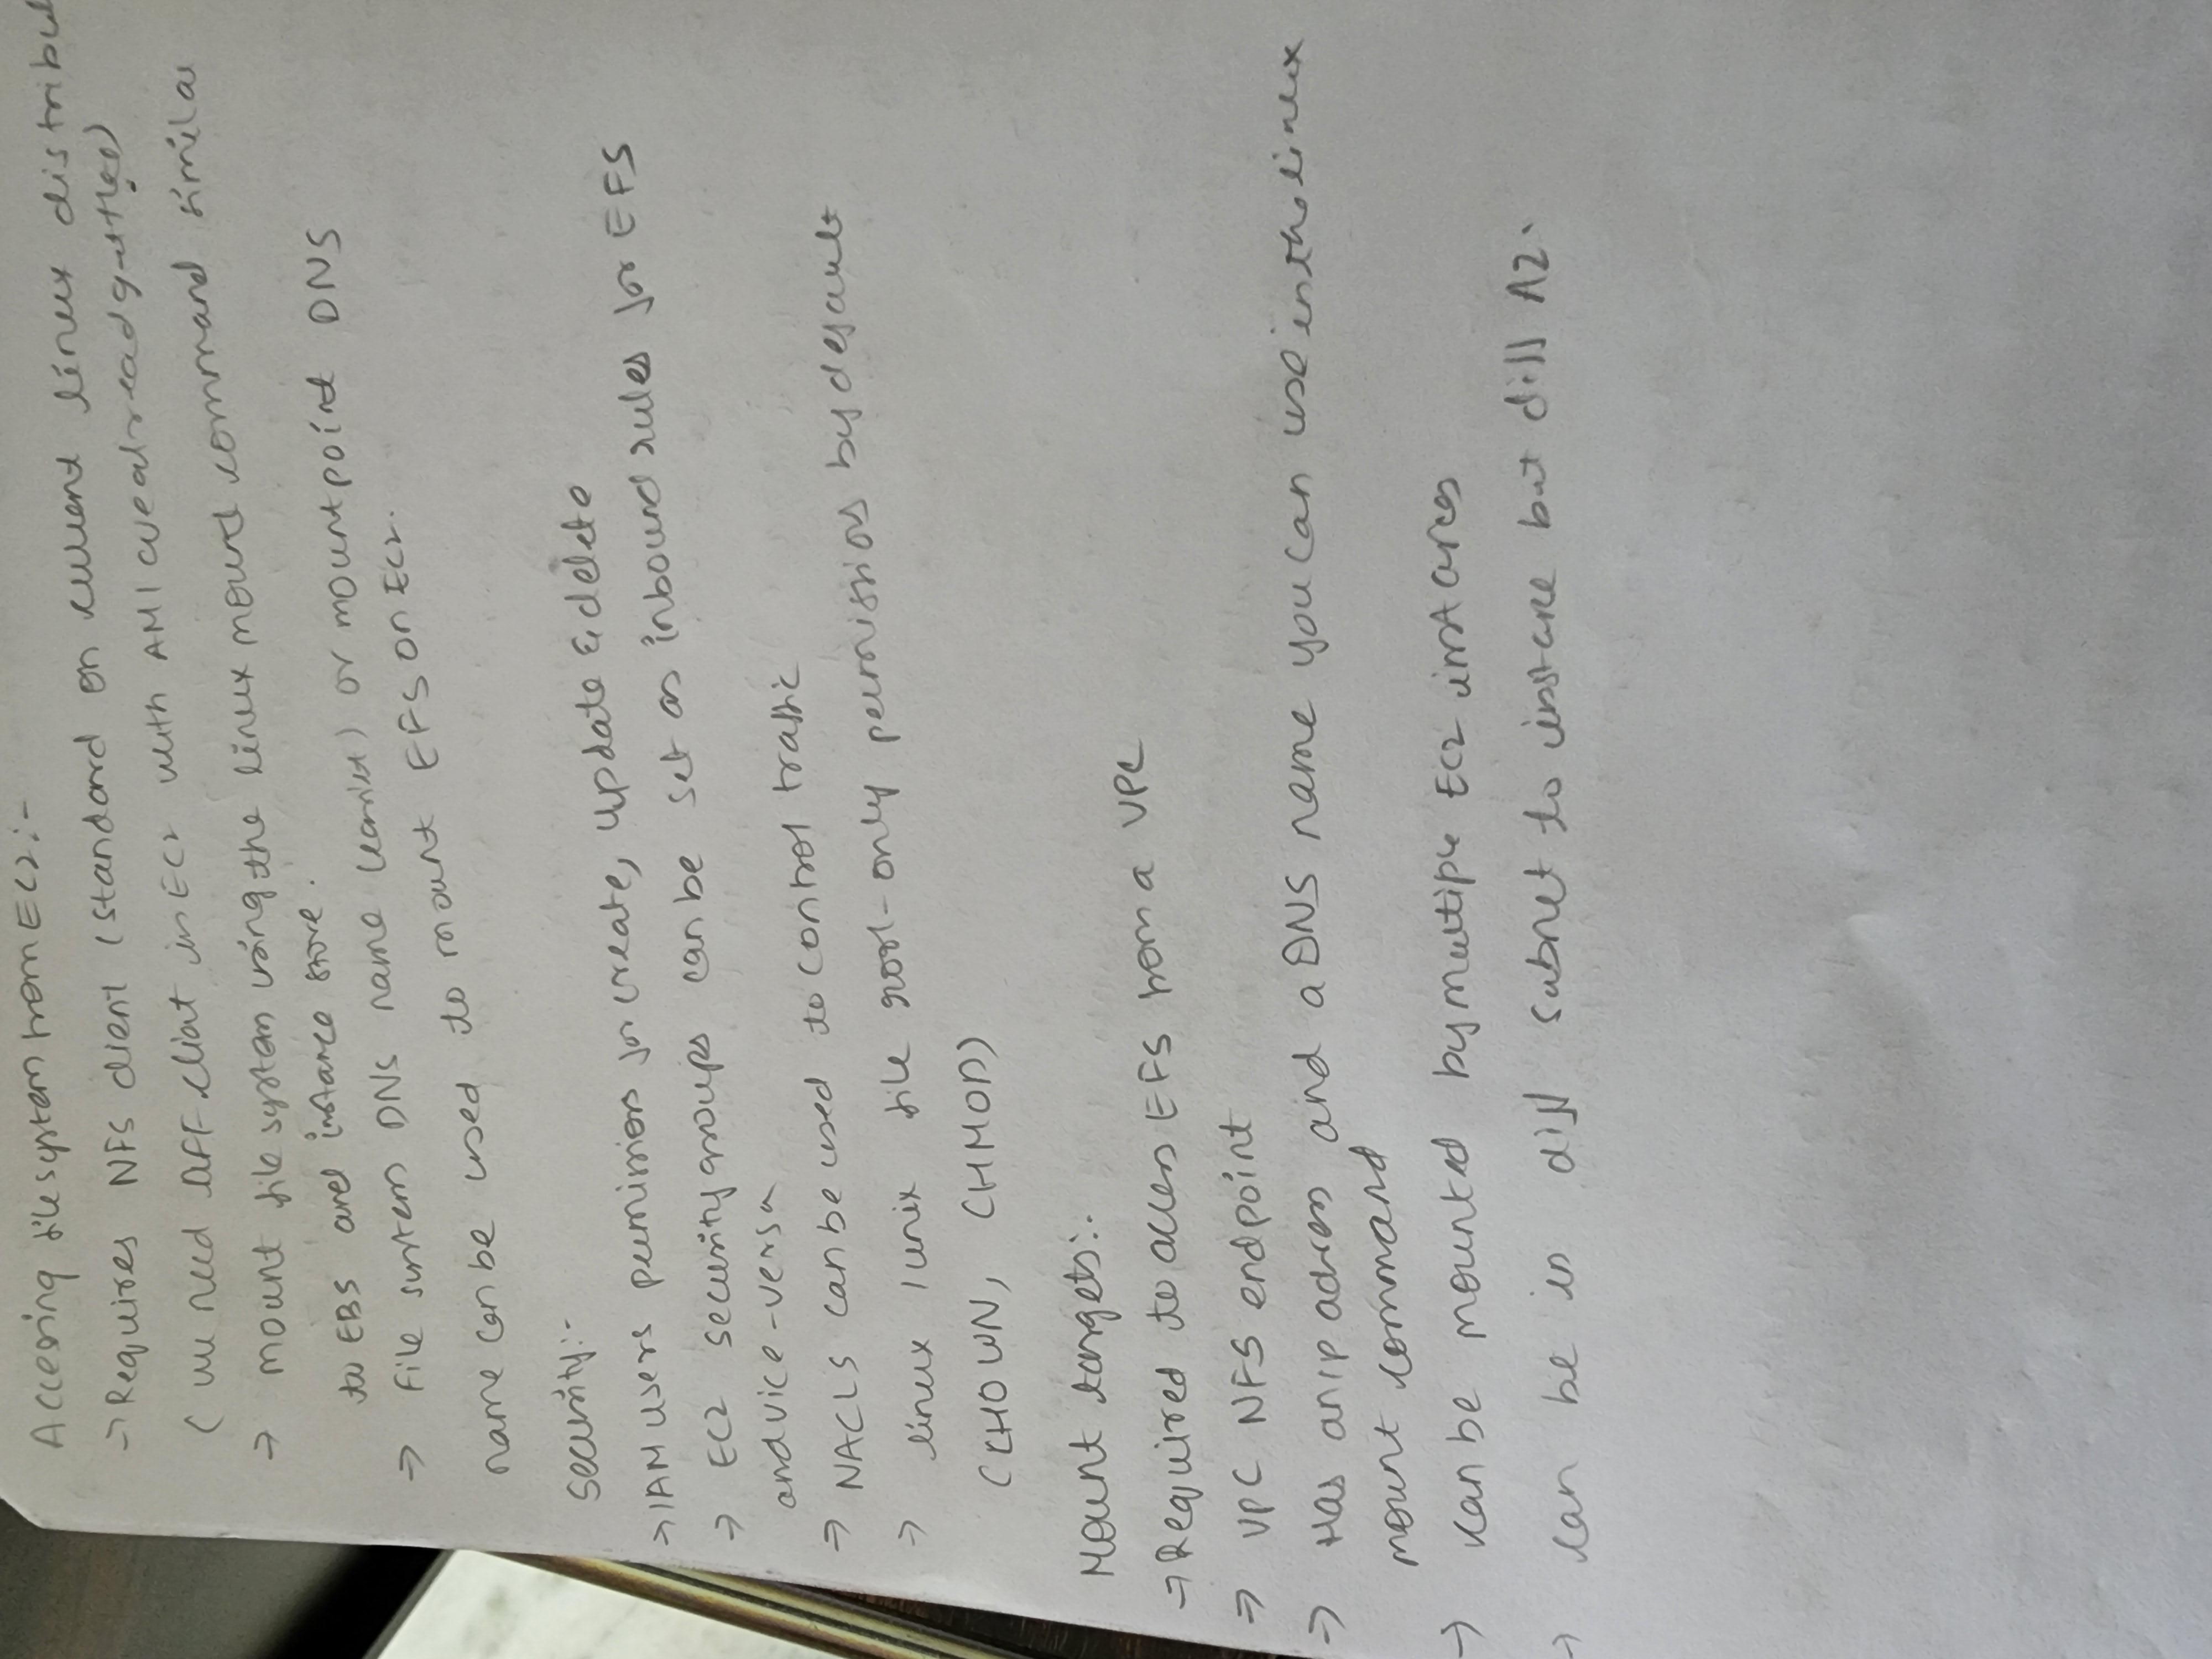 Accessing file system from EC2:-
→ Requires NFS client (standard on current linux distribut
( we need client in EC2 with AMI we already get
→ mount file system using the linux mount command similar
to EBS and instance store.
→ File system DNS name (easiest) or mountpoint DNS
name can be used to mount EFS on EC2.
Security:-
→ IAM users permissions for create, update & delete
→ EC2 security groups can be set as inbound rules for EFS
and vice-versa
→ NACLS can be used to control traffic
→ linux / unix file root-only permissions by default
(CHOWN, CHMOD)
Mount targets:-
→ Required to access EFS from a VPC
→ VPC NFS endpoint
→ Has an ip adress and a DNS name you can use in the linux
mount command
→ can be mounted by multiple EC2 instances
→ can be in diff subnet to instance but diff AZ.